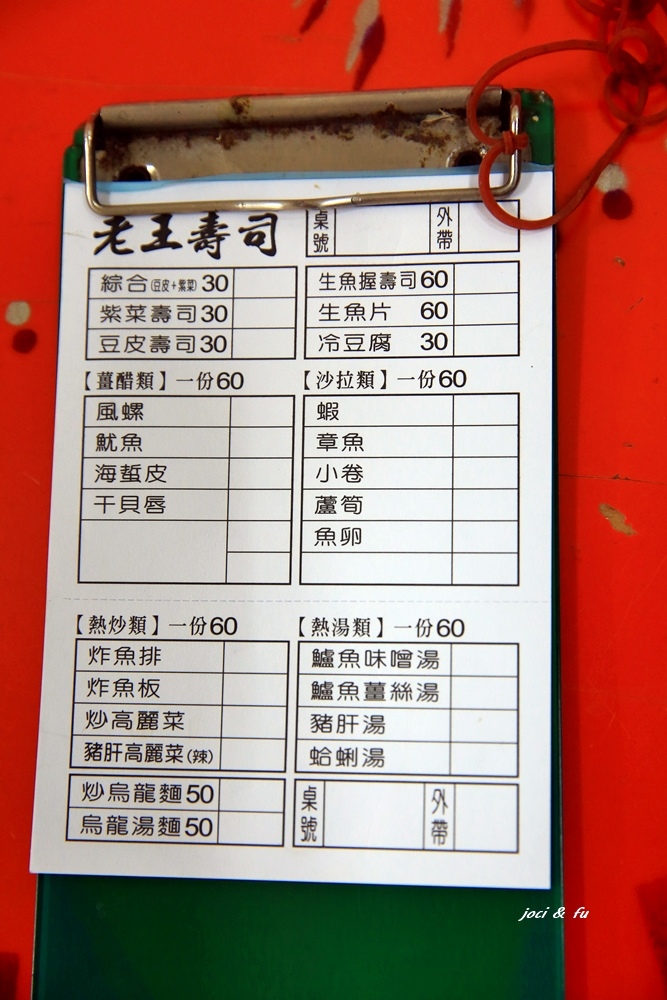 老王壽司
桌號
外帶
綜合(豆皮+紫菜)30
紫菜壽司30
豆皮壽司30
生魚握壽司60
生魚片 60
冷豆腐 30
【薑醋類】一份60
風螺
魷魚
海蜇皮
干貝唇
【沙拉類】一份60
蝦
章魚
小卷
蘆筍
魚卵
【熱炒類】一份60
炸魚排
炸魚板
炒高麗菜
豬肝高麗菜(辣)
炒烏龍麵50
烏龍湯麵50
【熱湯類】一份60
鱸魚味噌湯
鱸魚薑絲湯
豬肝湯
蛤蜊湯
桌號
外帶
joci & fu